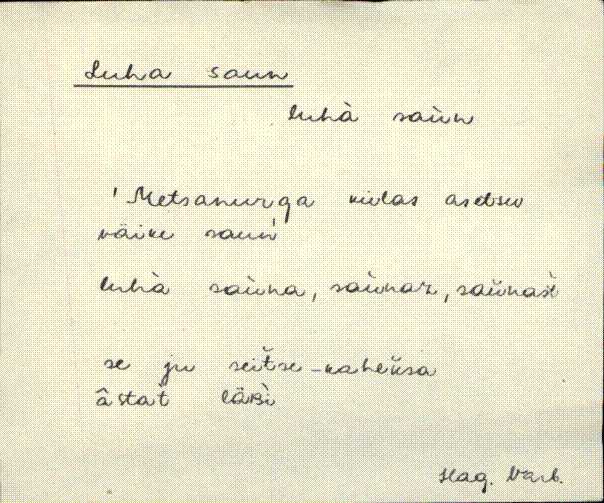 Luha saun
luhà saùn
'Metsanurga külas asetsev
väike saun'
luhà saùna, saùnaz, saùnast
se ju seitse-kaheksa
âstat läbi
Hag. Varb.